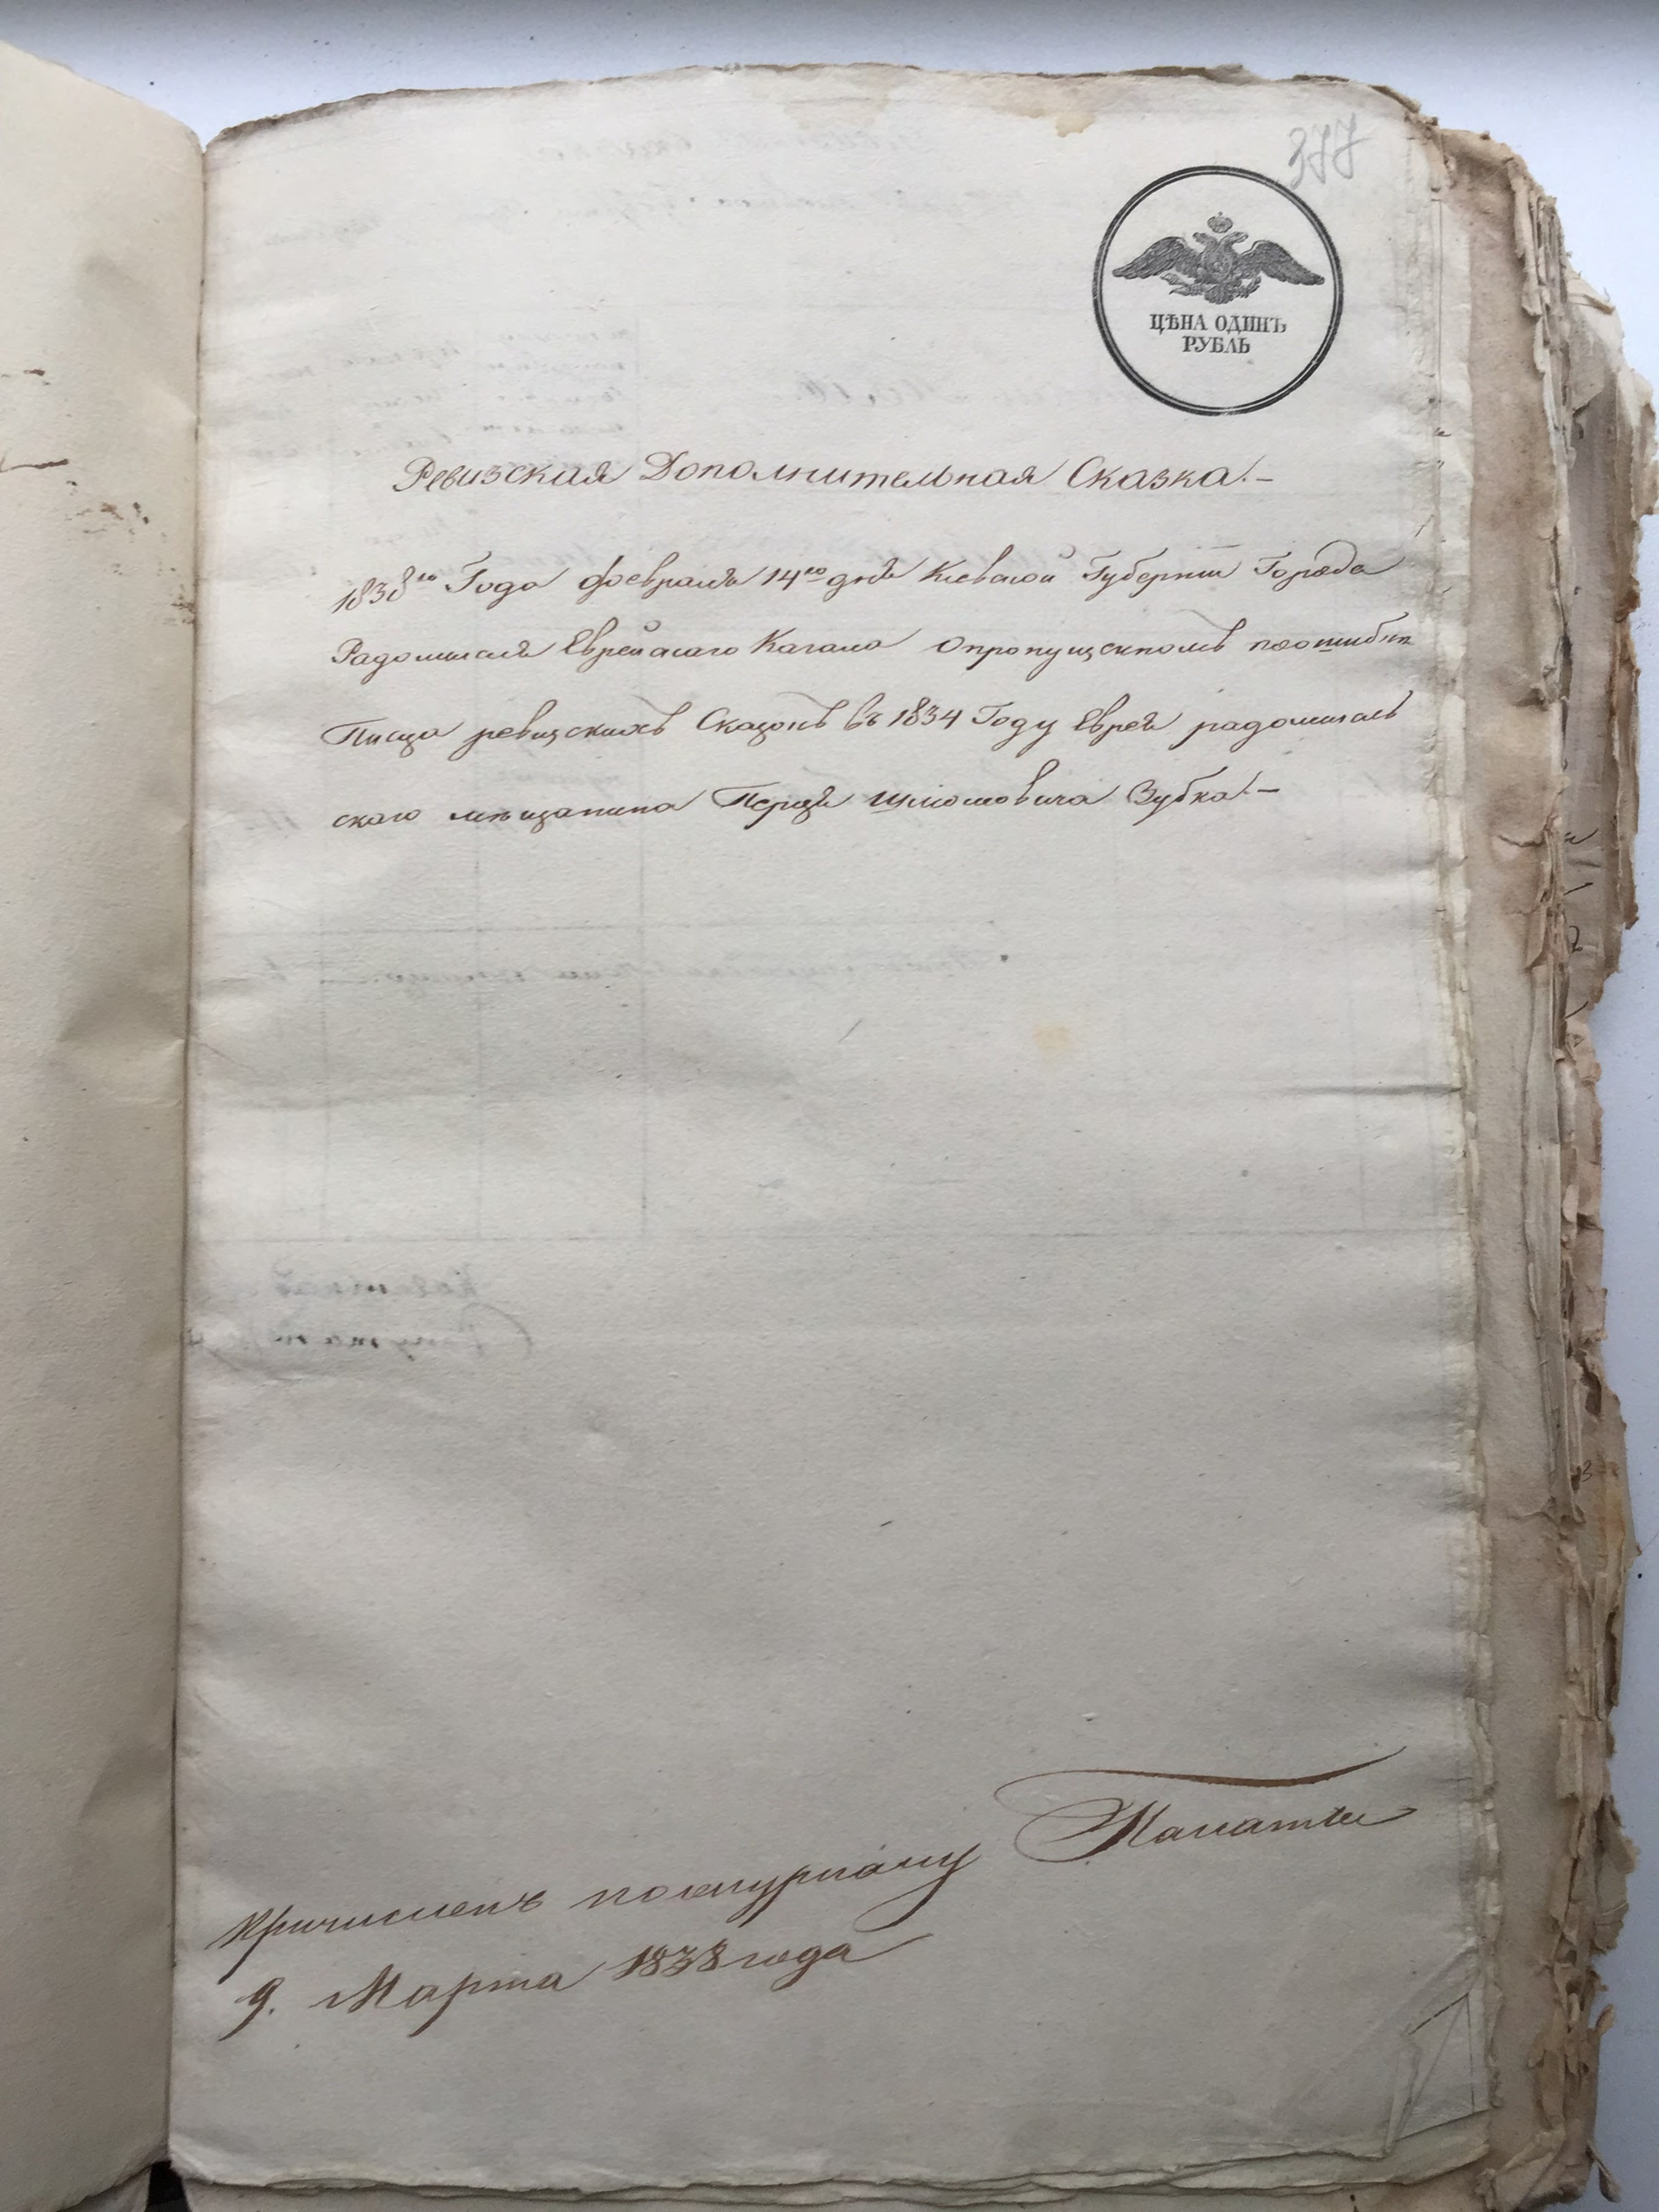 377
ЦѢНА ОДИНЪ
РУБЛЬ
Ревизская Дополнительная Сказка!-
1838го Года февраля 14го дня Киевской Губерніи Города
Радомысля Еврейскаго Кагала опропущенномъ поошибкѣ
Писца ревизскихъ Сказокъ въ 1834 Году Еврея радомысль
скаго мѣщанина Перца Шлiомовича Зубка!-
Причисленъ пожурналу Палаты
9. Марта 1838 года